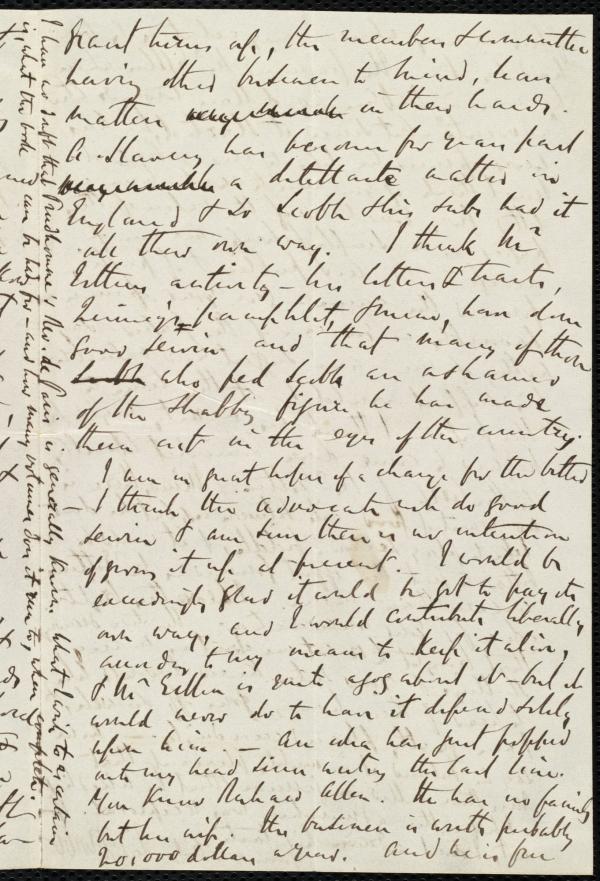 up, the members & committee
having other business to mind, have
matters in their hands.
A. Slavery has become for years past
a matter in
England & so Scoble & his subs had it
all their own way. I think Mr
Estlin's activity – his letters & tracts,
pamphlet, have done
good service and that many of those
who fed Scoble are ashamed
of the shabby figure he has made
them cut in the eyes of the country.
I am in great hopes of a change for the better
– I think the advocate will do good
service & I am sure there is no intention
of giving it up at present. I would be
exceedingly glad it could be got to pay its
own way, and I would contribute liberally
according to my means to keep it alive,
& Mr Estlin is quite agog about it – but it
would never do to have it depend solely
upon him. – An idea has just popped
into my head since writing the last line.
You know Richard Allen. He has no family
but his wife. His business is worth probably
20,000 dollars a year. And he is
I have no doubt that Prudhomme's Rev. de Paris is generally known. What I wish to ascertain
is, what the book can be had for – and how many volumes does it run to, when complete.